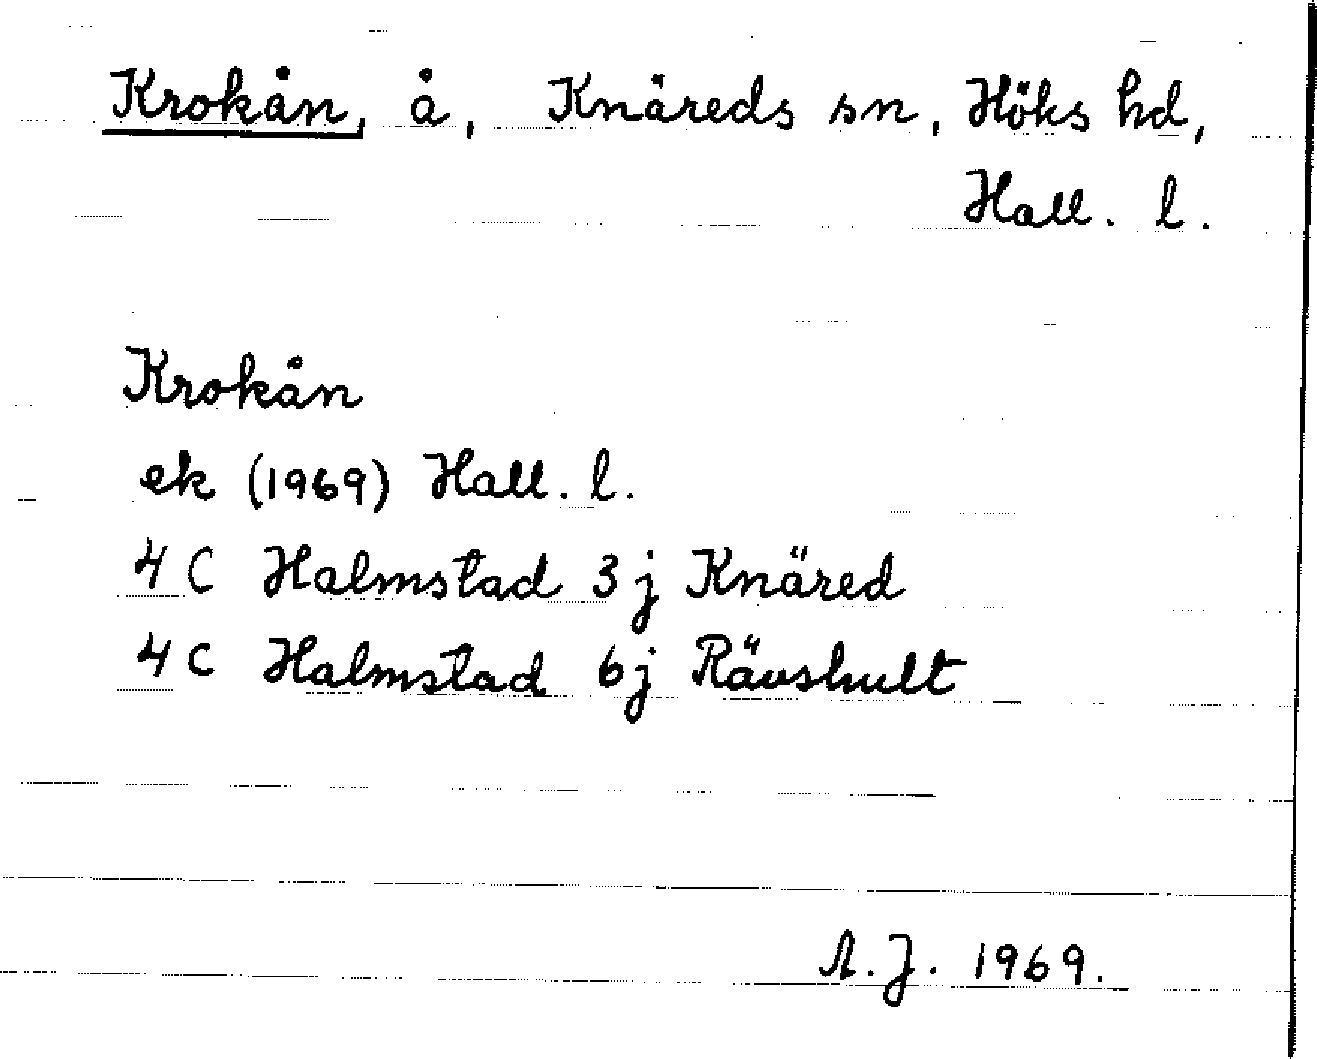 Krokån, å, Knäreds sn, Höks hd,
Hall. l.
Krokån
ek (1969) Hall. l.
4 C Halmstad 3 j Knäred
4 C Halmstad 6 j Rävshult
A.J. 1969.